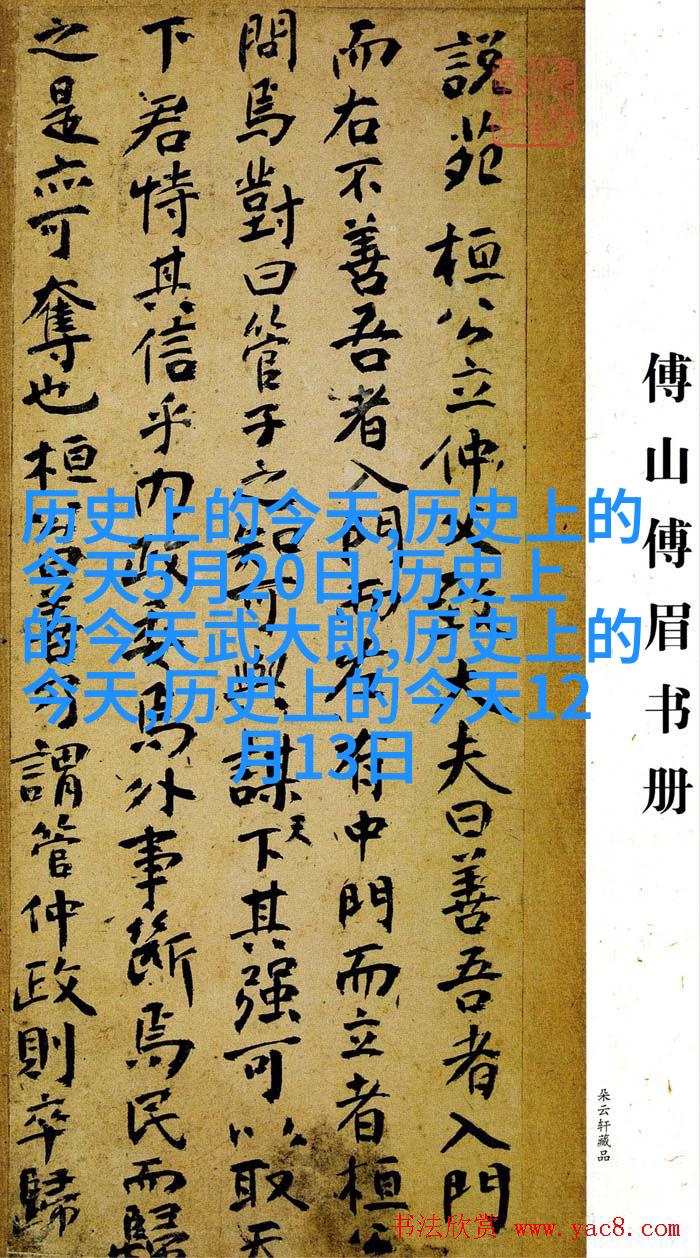 說苑 桓公立仲父致大夫曰善吾者入門
而右不善吾者入門而左有中門而立者桓公
問焉對曰管子之知可與謀天下其强可以取天
下君恃其信乎內政委焉外事斷焉民而歸
之是亦可奪也桓公曰善乃謂管仲政則卒歸
傅山傅眉书册
朵云轩藏品
历史上的今天,历史上的
今天5月20日,历史上
的今天武大郎,历史上的
今天,历史上的今天12
月13日
书法欣赏 www.yac8.com